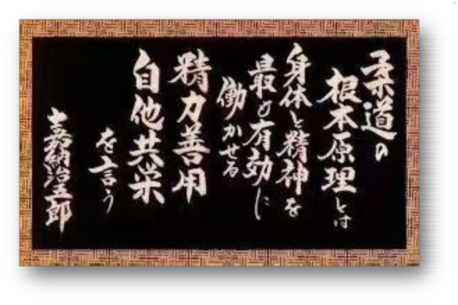 柔道の
根本原理とは
身体と精神を
最も有効に
働かせる
精力善用
自他共栄
を言う
嘉納治五郎